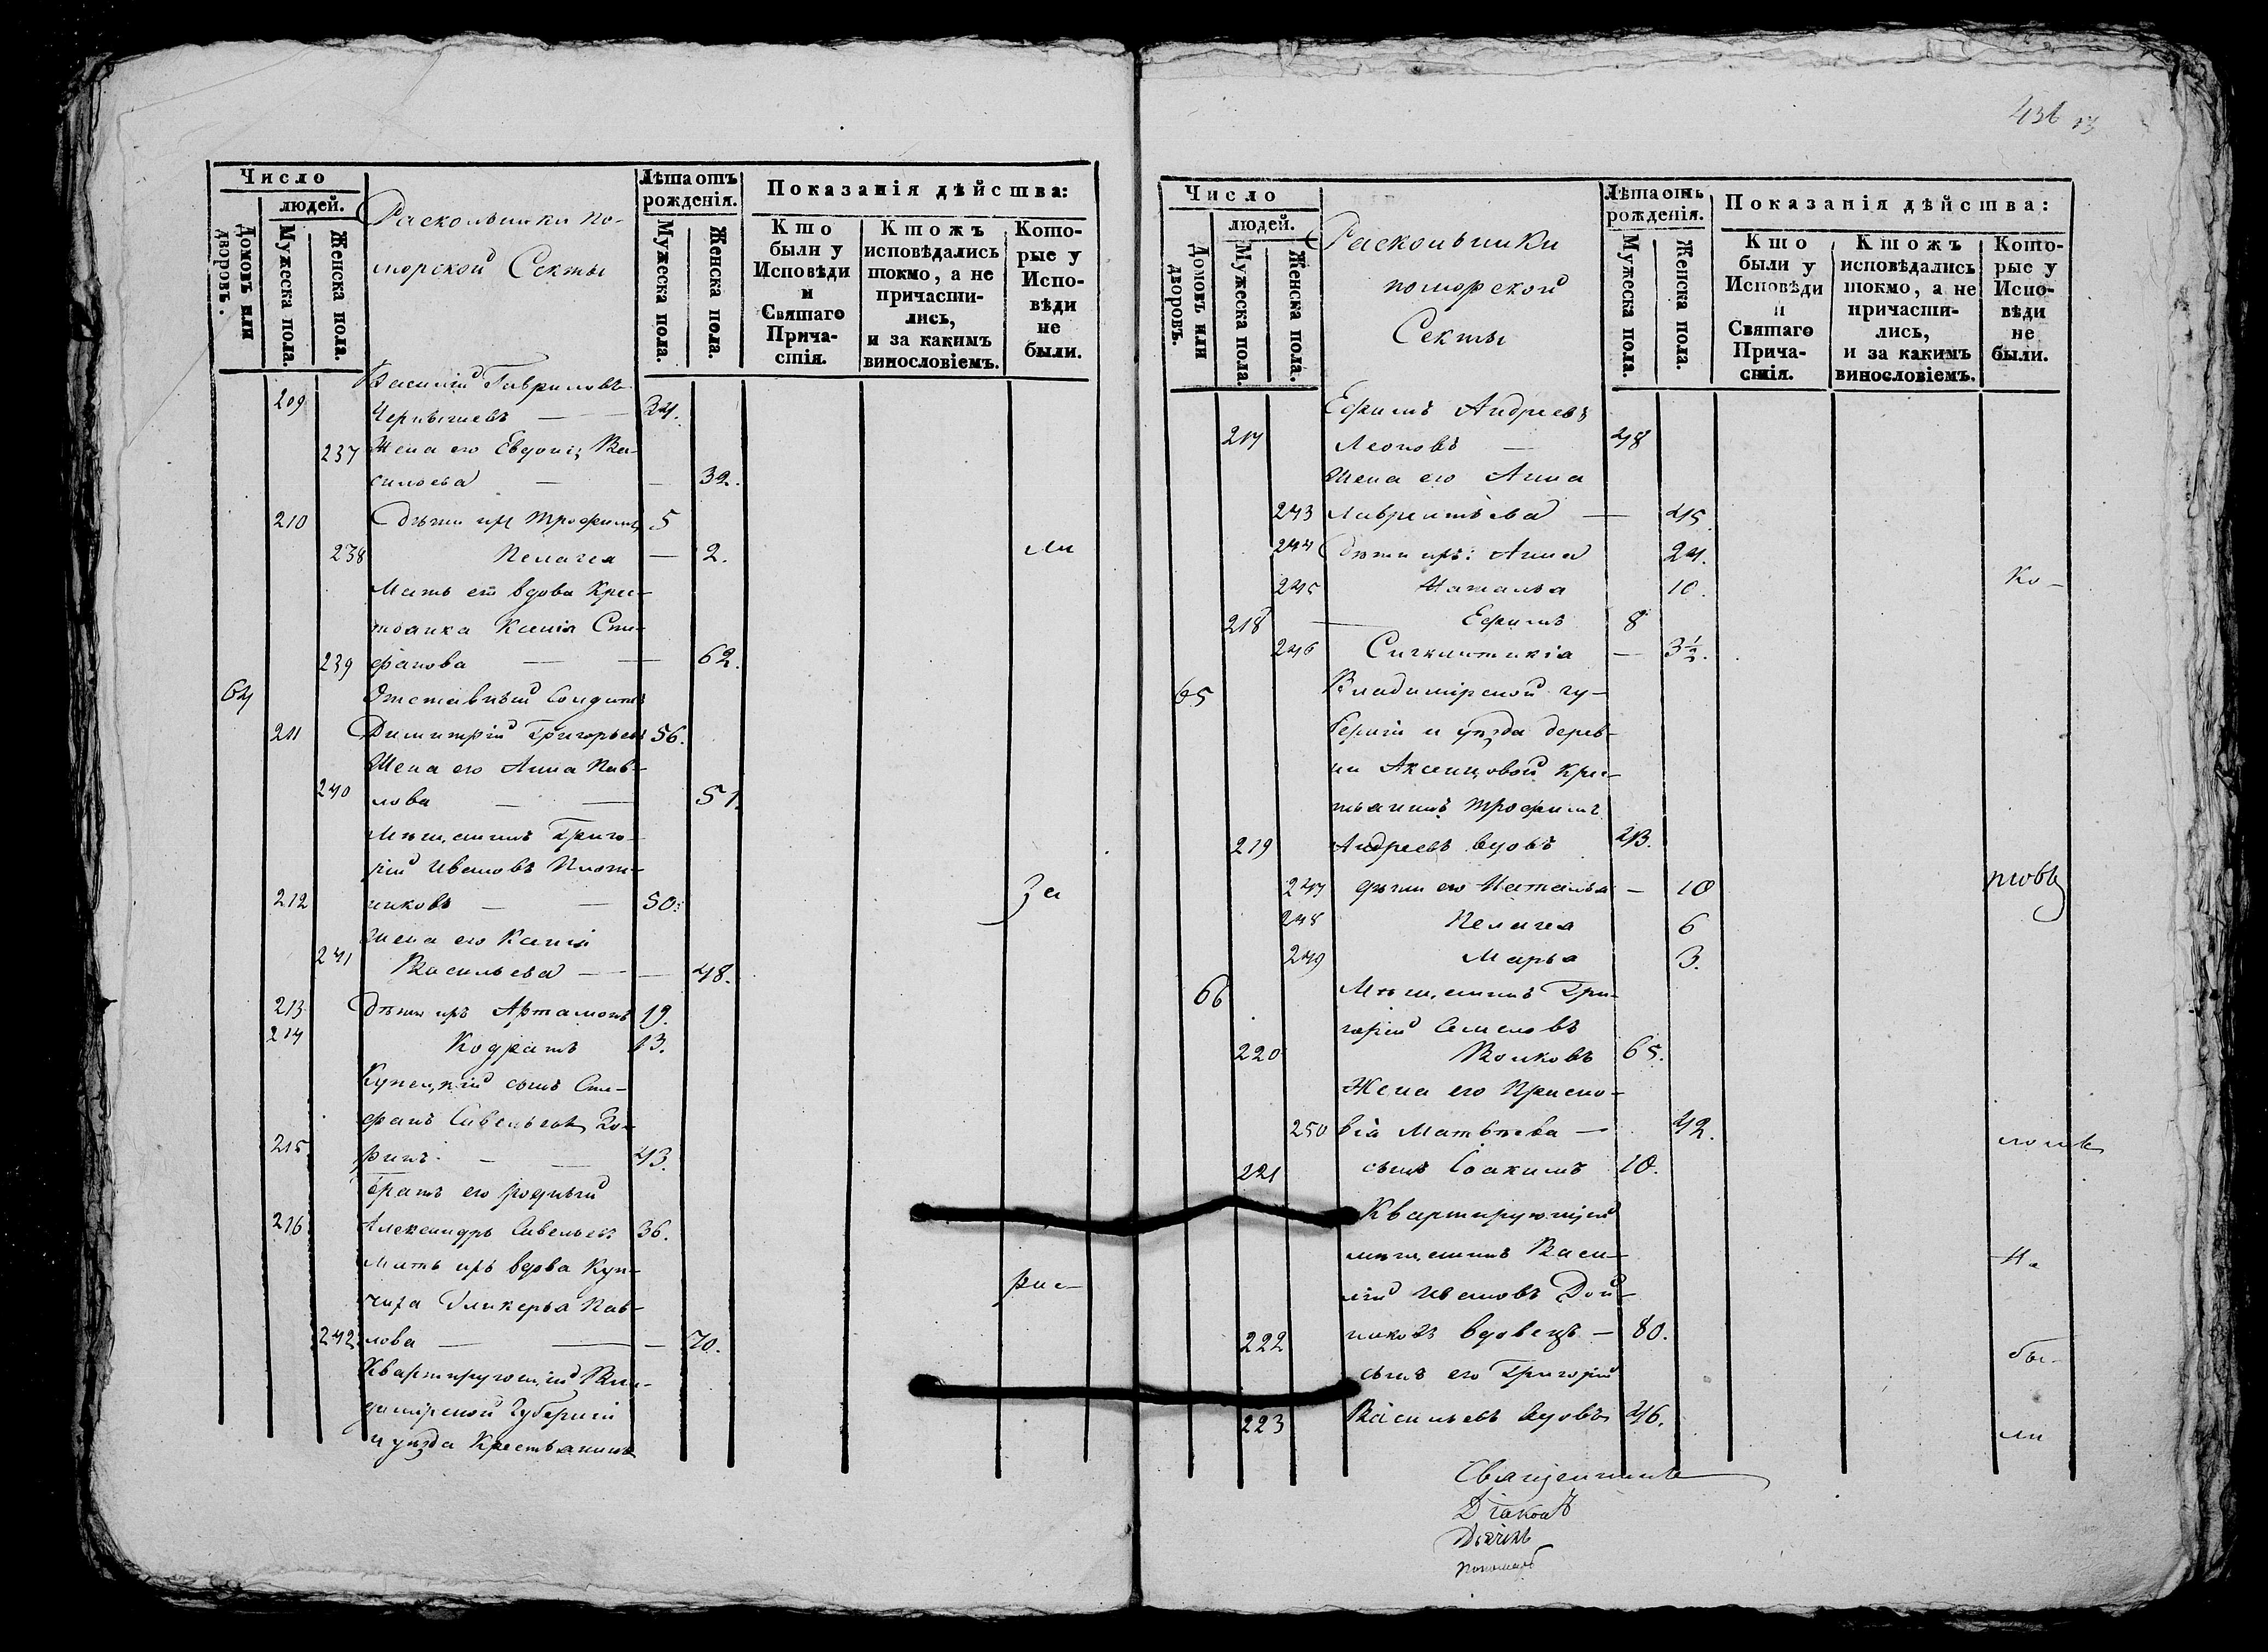 Число
людей.
Домовъ или дворовъ.
Мужеска пола.
Женска пола.
Раскольники по-
морской Секты
Лѣта отъ рожденія.
Мужеска пола.
Женска пола.
Показанія дѣйства:
Кто были у Исповѣди и Святаго Причастія.
Ктожъ исповѣдались токмо, а не причастились, и за какимъ винословіемъ.
Которые у Исповѣди не были.
Василій Гавриловъ
209 Чернышевъ — 34.
237 Жена его Евдокія Ва-
сильева — 32.
210 Дѣти ихъ Трофимъ 5
238 Пелагея — 2. ли
Мать его вдова Крес-
тьянка Ксенія Сте-
239 фанова — 62.
64 Отставный Солдатъ
211 Димитрій Григорьевъ 56.
Жена его Анна Пав-
240 лова — 51.
Мѣщанинъ Григо-
рій Ивановъ Плот-
212 никовъ — 50. За
Жена его Ксенія
241 Васильева — 48.
213 Дѣти ихъ Артамонъ 19.
214 Кодратъ 13.
Купецкій сынъ Сте-
фанъ Савельевъ Зо-
215 ринъ — 43.
братъ его родный
216 Александръ Савельевъ 36.
Мать ихъ вдова Куп-
чиха Гликерья Пав- рас-
242 лова — 70.
Квартирующій Вла-
димірской Губерніи
и уѣзда Крестьянинъ
436 13
Число
людей.
Домовъ или дворовъ.
Мужеска пола.
Женска пола.
Раскольники
поморской
Секты
Лѣта отъ рожденія.
Мужеска пола.
Женска пола.
Показанія дѣйства:
Кто были у Исповѣди и Святаго Причастія.
Ктожъ исповѣдались токмо, а не причастились, и за какимъ винословіемъ.
Которые у Исповѣди не были.
Ефимъ Андреевъ
217 Леоновъ — 48
Жена его Анна
243 Лаврентьева — 45.
244 Дѣти ихъ: Анна 24.
245 Наталья 10. Ко-
218 Ефимъ 8
246 Сигклитикія — 3½.
65 Владимірской гу-
берніи и уѣзда дерев-
ни Аксенцовой Крес-
тьянинъ Трофимъ
219 Андреевъ вдовъ 43.
247 дѣти его Наталья — 10
248 Пелагея 6
249 Марья 3.
66 Мѣщанинъ Гри-
горій Семеновъ
220 Волковъ 65.
Жена его Праско-
250 вія Матвѣева — 42.
221 сынъ Іоакимъ 10.
Квартирующій
мѣщанинъ Васи- Не
лій Ивановъ Дой-
222 никовъ вдовецъ — 80.
сынъ его Григорій бы-
223 Васильевъ вдовъ 46.
ли
Священникъ
Діаконъ
Дьячекъ
Пономарь